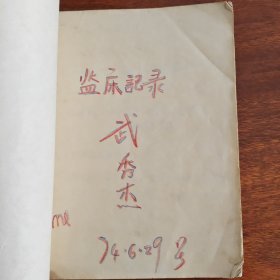 监床記录
武
秀
杰
74·6·29号
me